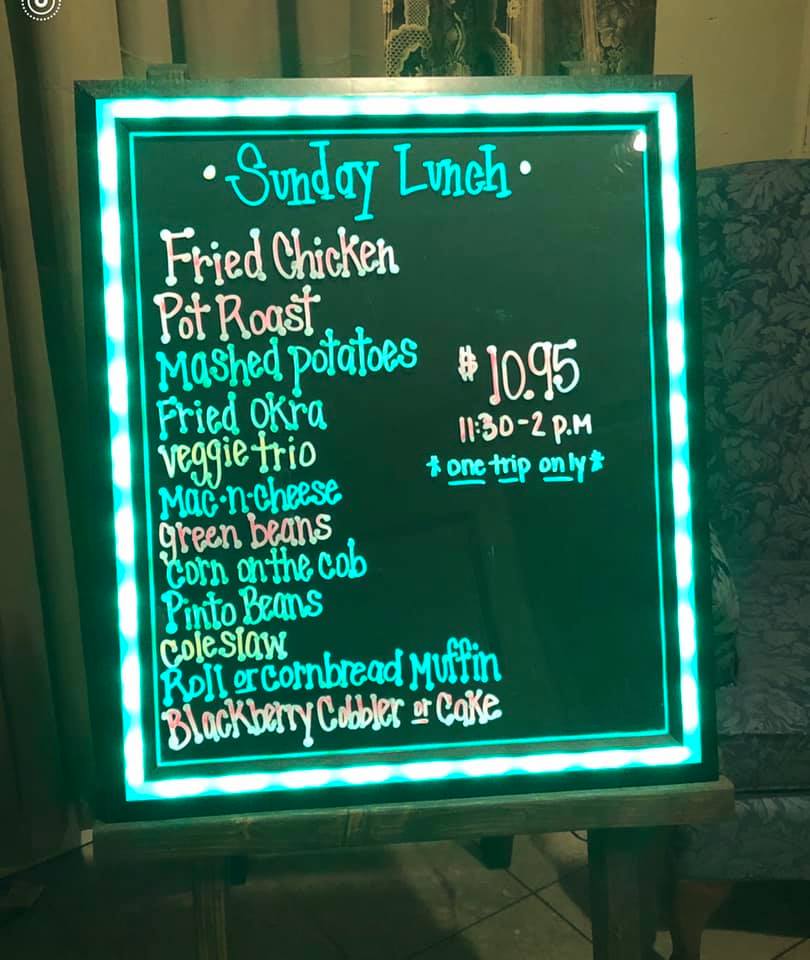 • Sunday Lunch •
Fried Chicken
Pot Roast
Mashed potatoes
Fried Okra
veggie trio
Mac-n-cheese
green beans
corn on the cob
Pinto Beans
coleslaw
Roll or cornbread Muffin
Blackberry Cobbler or Cake
$10.95
11:30-2 P.M
*one trip only*